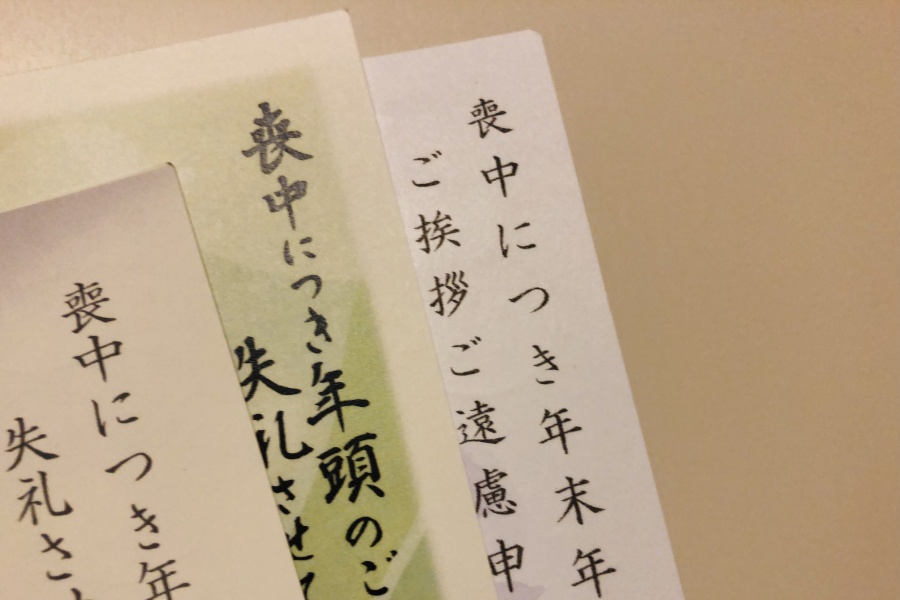 喪中につき年末年
ご挨拶ご遠慮申
喪中につき年頭のご
失礼させて
喪中につき年
失礼さ